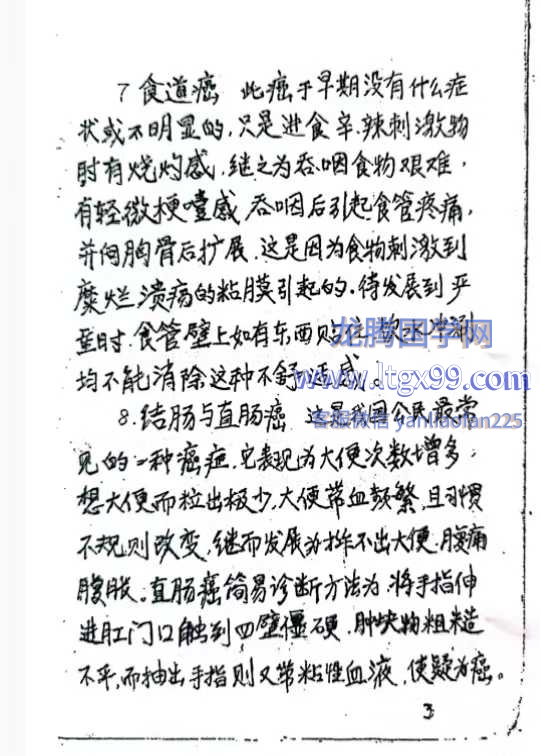 7 食道癌 此癌于早期没有什么症
状或不明显的,只是进食辛.辣刺激物
时有烧灼感.继之为吞咽食物艰难,
有轻微梗噎感 吞咽后引起食管疼痛,
并向胸骨后扩展.这是因为食物刺激到
糜烂溃疡的粘膜引起的.待发展到严
重时.食管壁上如有东西贴住 饮水冲涮
均不能消除这种不舒适感。
8.结肠与直肠癌 这是我国公民最常
见的一种癌症.它表现为大便次数增多.
想大便而粒出极少,大便带血频繁,且习惯
不规则改变,继而发展为拌不出大便.腹痛
腹胀。直肠癌简易诊断方法为.将手指伸
进肛门口触到四壁僵硬.肿块物粗糙
不平,而抽出手指则又带粘性血液,使疑为癌。
3
龙腾国学网
www.ltgx99.com
客服微信 yanliaofan225